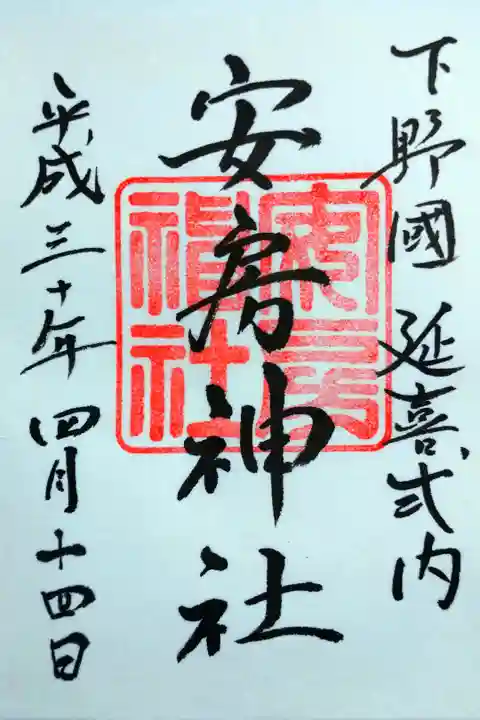 下野國 延喜式内
安房神社
安房
神社
平成三十年 四月十四日